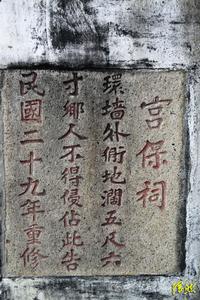 宫保祠
環墙外衛地濶五尺六
才鄉人不得侵佔此告
民國二十九年重修